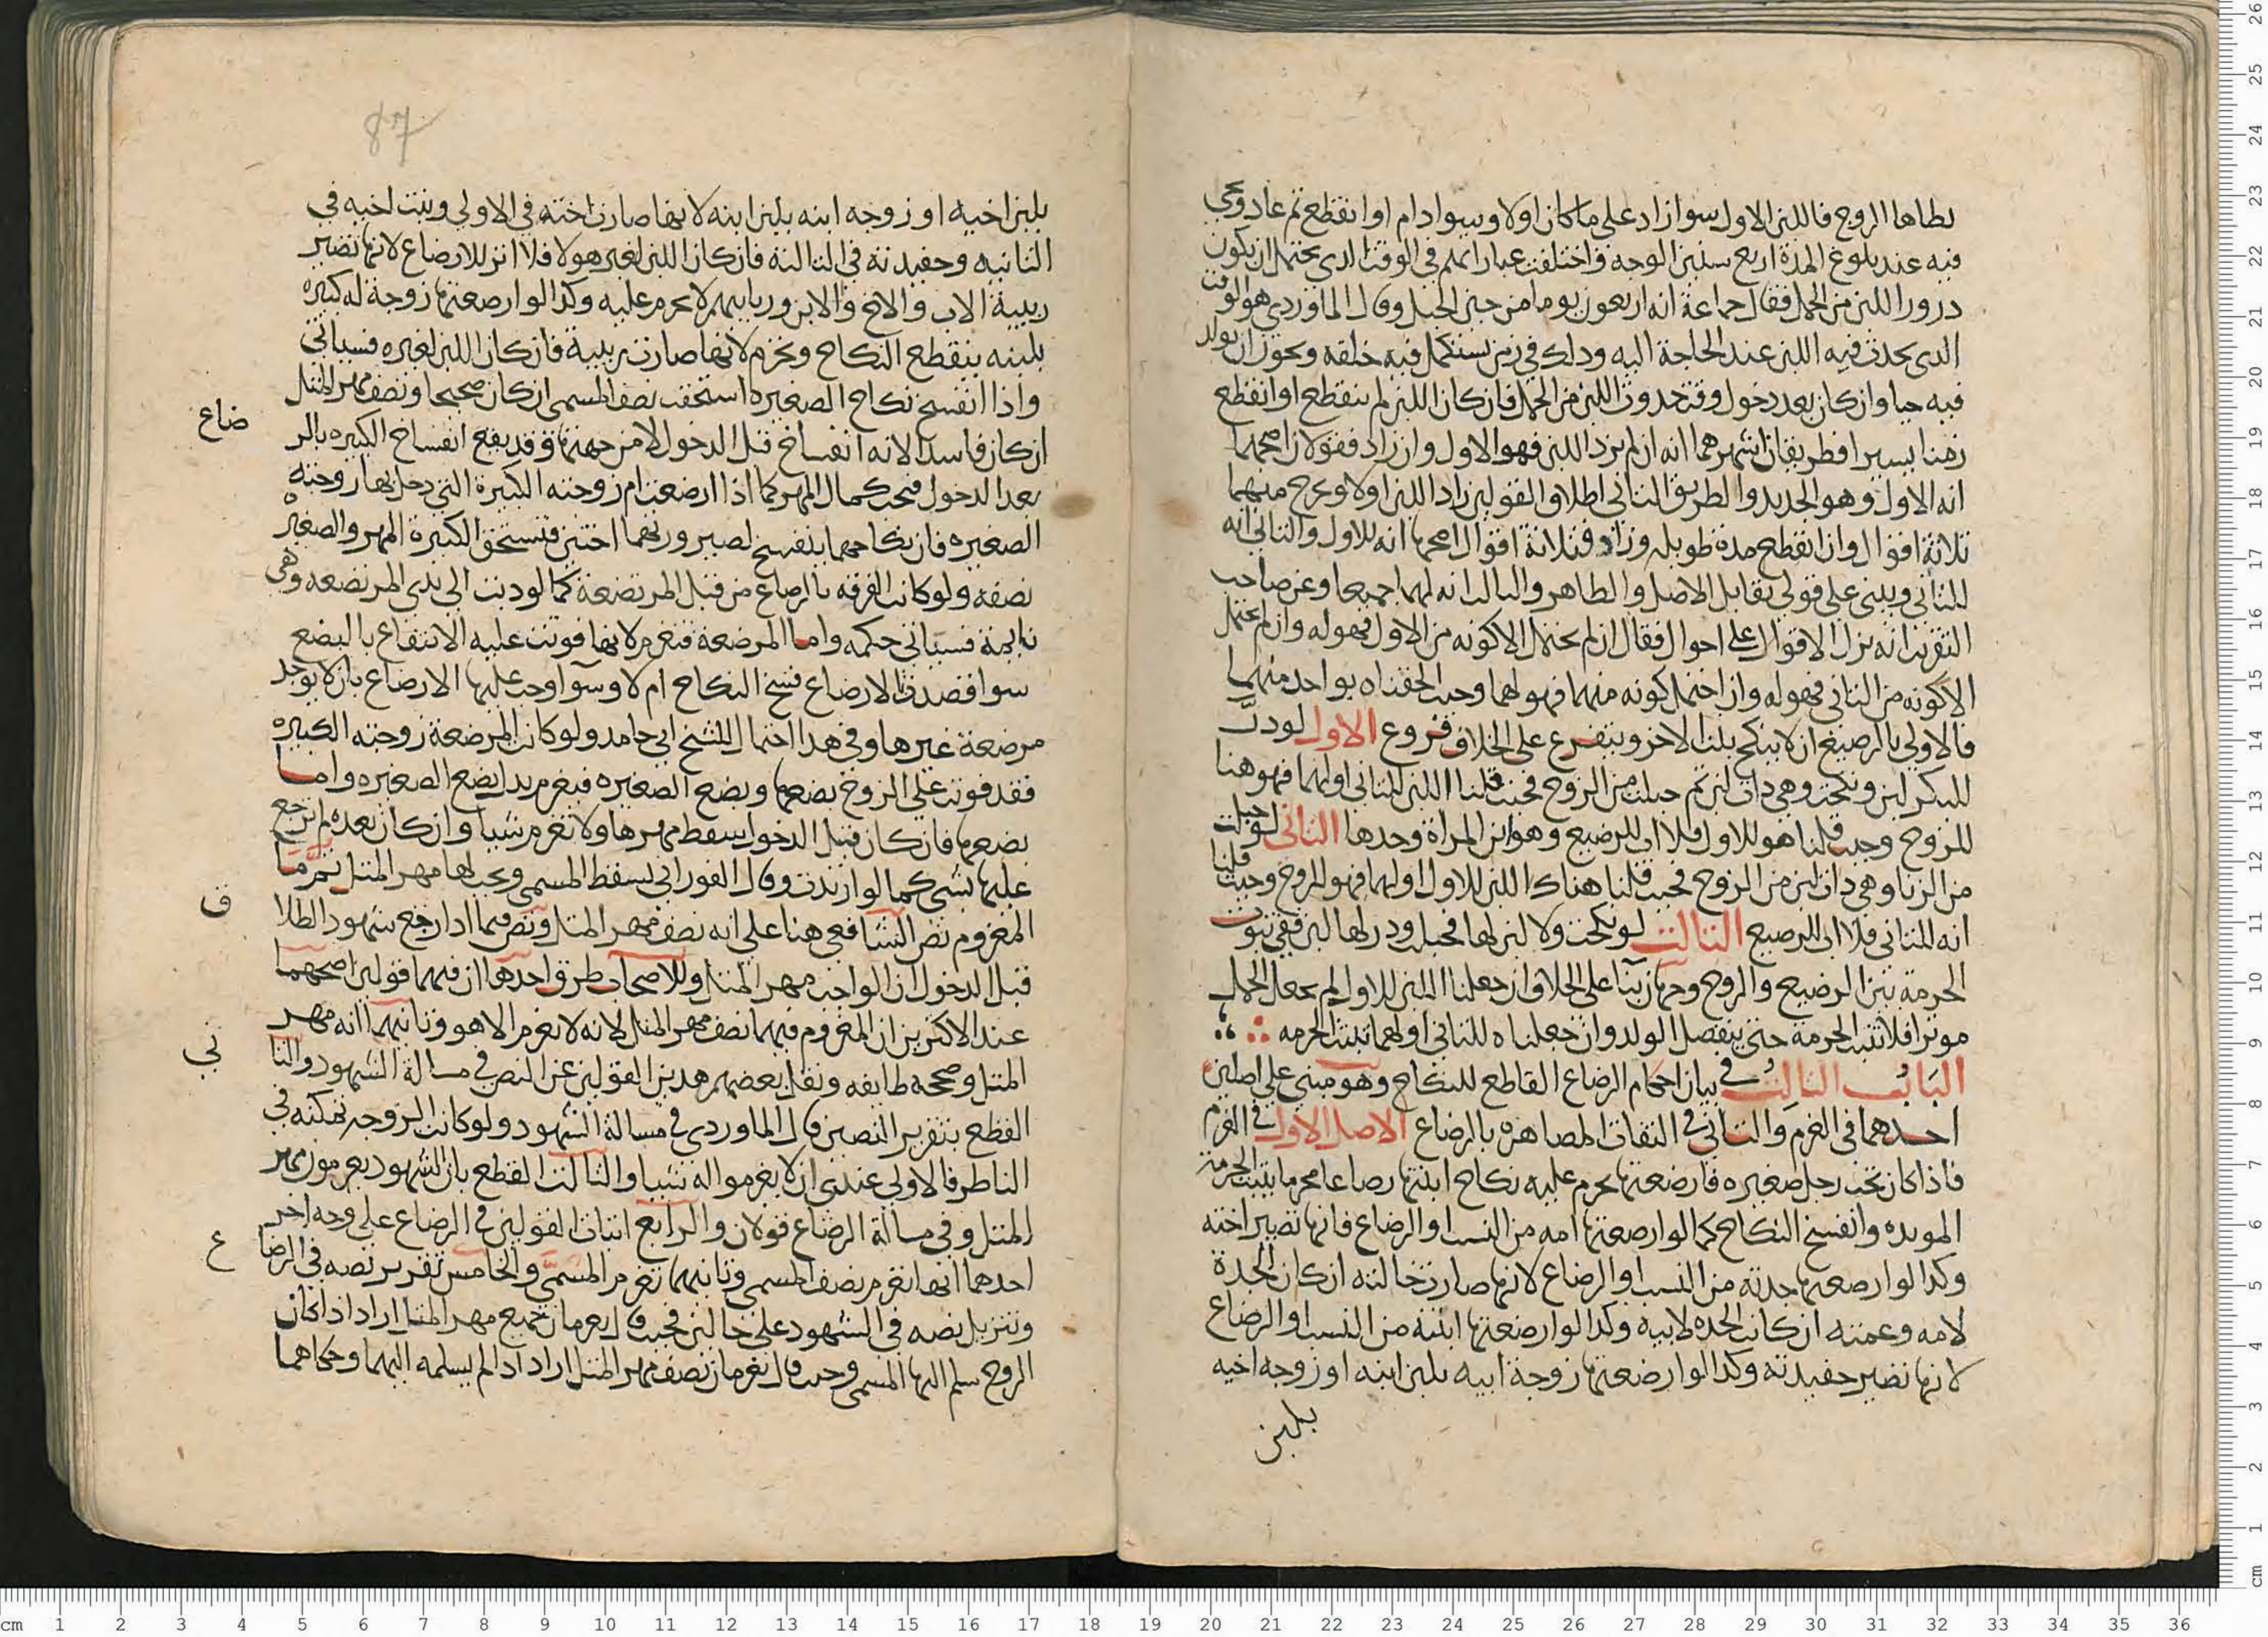 يطاها الزوج فاللبن الاول سوا زاد على ما كان اولا وسوا دام او انقطع ثم عاد وفي
فيه عند بلوغ المدة اربع سنين الوجه واختلفت عباراتهم في الوقت الدي يحتمل ان يكون
درور اللبن من الحمل فقال جماعة انه اربعون يوما من حين الحبل وقال الماوردي هو الوقت
الدي يحدث فيه اللبن عند الحاجة اليه ودلك في زمن يستكمل فيه خلقه ويجوز ان يولد
فيه حيا وان كان بعد دخول وقت حدوث اللبن من الحمل فان كان اللبن لم ينقطع او انقطع
زمنا يسيرا فطريقان اشهرهما انه ان لم يزد اللبن فهو للاول وان زاد فقولان اصحهما
انه للاول وهو الجديد والطريق الثاني اطلاق القولين زاد اللبن اولا ويخرج منهما
ثلاثة اقوال وان انقطع مدة طويلة وزاد فثلاثة اقوال اصحها انه للاول والثاني انه
للثاني ويبنى على قولي تقابل الاصل والظاهر والثالث انه لهما جميعا وعن صاحب
التقريب انه نزل الاقوال على احوال فقال ان لم يحتمل الا كونه من الاول فهو له وان لم يحتمل
الا كونه من الثاني فهو له وان احتمل كونه منهما فهو لهما وحيث الحقناه بواحد منهما
فالاولى بالرضيع ان لا ينكح بنت الاخر ويتفرع على الخلاف فروع الاول لو درَّ
للبكر لبن ونكحت وهي ذات لبن ثم حبلت من الزوج فحيث قلنا اللبن للثاني او لهما فهو هنا
للزوج وحيث قلنا هو للاول فلا اب للرضيع وهو ابن المراة وحدها الثاني لو حبلت
من الزنا وهي ذات لبن من الزوج فحيث قلنا هناك اللبن للاول او لهما فهو للزوج وحيث قلنا
انه للثاني فلا اب للرضيع الثالث لو نكحت ولا لبن لها فحبلت ودر لها لبن ففي ثبوت
الحرمة بين الرضيع والزوج وجهان بنا على الخلاف ان جعلنا اللبن للاول لم يجعل الحمل
موثرا فلا تثبت الحرمة حتى ينفصل الولد وان جعلناه للثاني او لهما تثبت الحرمه
الباب الثالث في بيان احكام الرضاع القاطع للنكاح وهو مبني على اصلين
احدهما في الغرم والثاني في التفات المصاهره بالرضاع الاصل الاول في الغرم
فاذا كان تحت رجل صغيره فارضعتها من يحرم عليه نكاح ابنتها رضاعا محرما يثبت الحرمة
الموبده وانفسخ النكاح كما لو ارضعتها امه من النسب او الرضاع فانها تصير اخته
وكدا لو ارضعتها جدته من النسب او الرضاع لانها صارت خالته ان كان الجدة
لامه وعمته ان كانت الجده لابيه وكدا لو ارضعتها ابنته من النسب او الرضاع
لانها تصير حفيدته وكدا لو ارضعتها زوجة ابيه بلبن ابنه او زوجه اخيه
بلبن
87
بلبن اخيه او زوجه ابنه بلبن ابنه لانها صارت اخته في الاولى وبنت اخيه في
الثانيه وحفيدته في الثالثة فان كان اللبن لغير هولا فلا اثر للارضاع لانها تصير
ربيبة الاب والاخ والابن وربايبهم لا تحرم عليه وكدا لو ارضعتها زوجة له كبيره
بلبنه ينقطع النكاح وتحرم لانها صارت ربيبة فان كان اللبن لغيره فسياتي
واذا انفسخ نكاح الصغيره استحقت نصف المسمى ان كان صحيحا ونصف مهر المثل
ان كان فاسدا لانه انفساخ قبل الدخول لا من جهتها وقد يقع انفساخ الكبيره بالر
ضاع
بعد الدخول فتجب كمال المهر كما اذا ارضعت ام زوجته الكبيرة التي دخل بها زوجته
الصغيره فان نكاحهما ينفسخ لصيرورتهما اختين فتستحق الكبيرة المهر والصغيره
نصفه ولو كانت الفرقه بالرضاع من قبل المرتضعة كما لو دبت الى ثدي المرضعه وهي
نايمة فسياتي حكمه واما المرضعة فتغرم لانها فوتت عليه الانتفاع بالبضع
سوا قصدت بالارضاع فسخ النكاح ام لا وسوآ وجب عليها الارضاع بان لا يوجد
مرضعة غيرها وفي هدا احتمال للشيخ ابي حامد ولو كانت المرضعة زوجته الكبيره
فقد فوتت على الزوج بضعها وبضع الصغيره فيغرم بدل بضع الصغيره واما
بضعها فان كان قبل الدخول سقط مهرها ولا تغرم شيا وان كان بعده لم يرجع
عليها بشي كما لو ارتدت وقال الفوراني يسقط المسمى ويجب لها مهر المثل ثم ما
المغروم نص الشافعي هنا على انه نصف مهر المثل ونص فيما ادا رجع شهود الطلا
ق
قبل الدخول ان الواجب مهر المثل وللاصحاب طرق احدها ان فيهما قولين اصحهما
عند الاكثرين ان المغروم فيهما نصف مهر المثل لانه لا يغرم الا هو وثانيهما انه مهر
المثل وصححه طايفه ونقل بعضهم هدين القولين عن النص في مسالة الشهود والثا
ني
القطع بتقرير النصين قال الماوردي في مسالة الشهود ولو كانت الزوجه تمكنه في
الناظر فالاولى عندي ان لا يغرموا له شيا والثالث القطع بان الشهود يغرمون مهر
المثل وفي مسالة الرضاع قولان والرابع اثبات القولين في الرضاع على وجه اخر
احدهما انها تغرم نصف المسمى وثانيهما تغرم المسمى والخامس تقرير نصه في الرضا
ع
وتنزيل نصه في الشهود على حالين فحيث قال يغرمان جميع مهر المثل اراد اذا كان
الزوج سلم اليها المسمى وحيث قال يغرمان نصف مهر المثل اراد ادا لم يسلمه اليهما وحكاهما